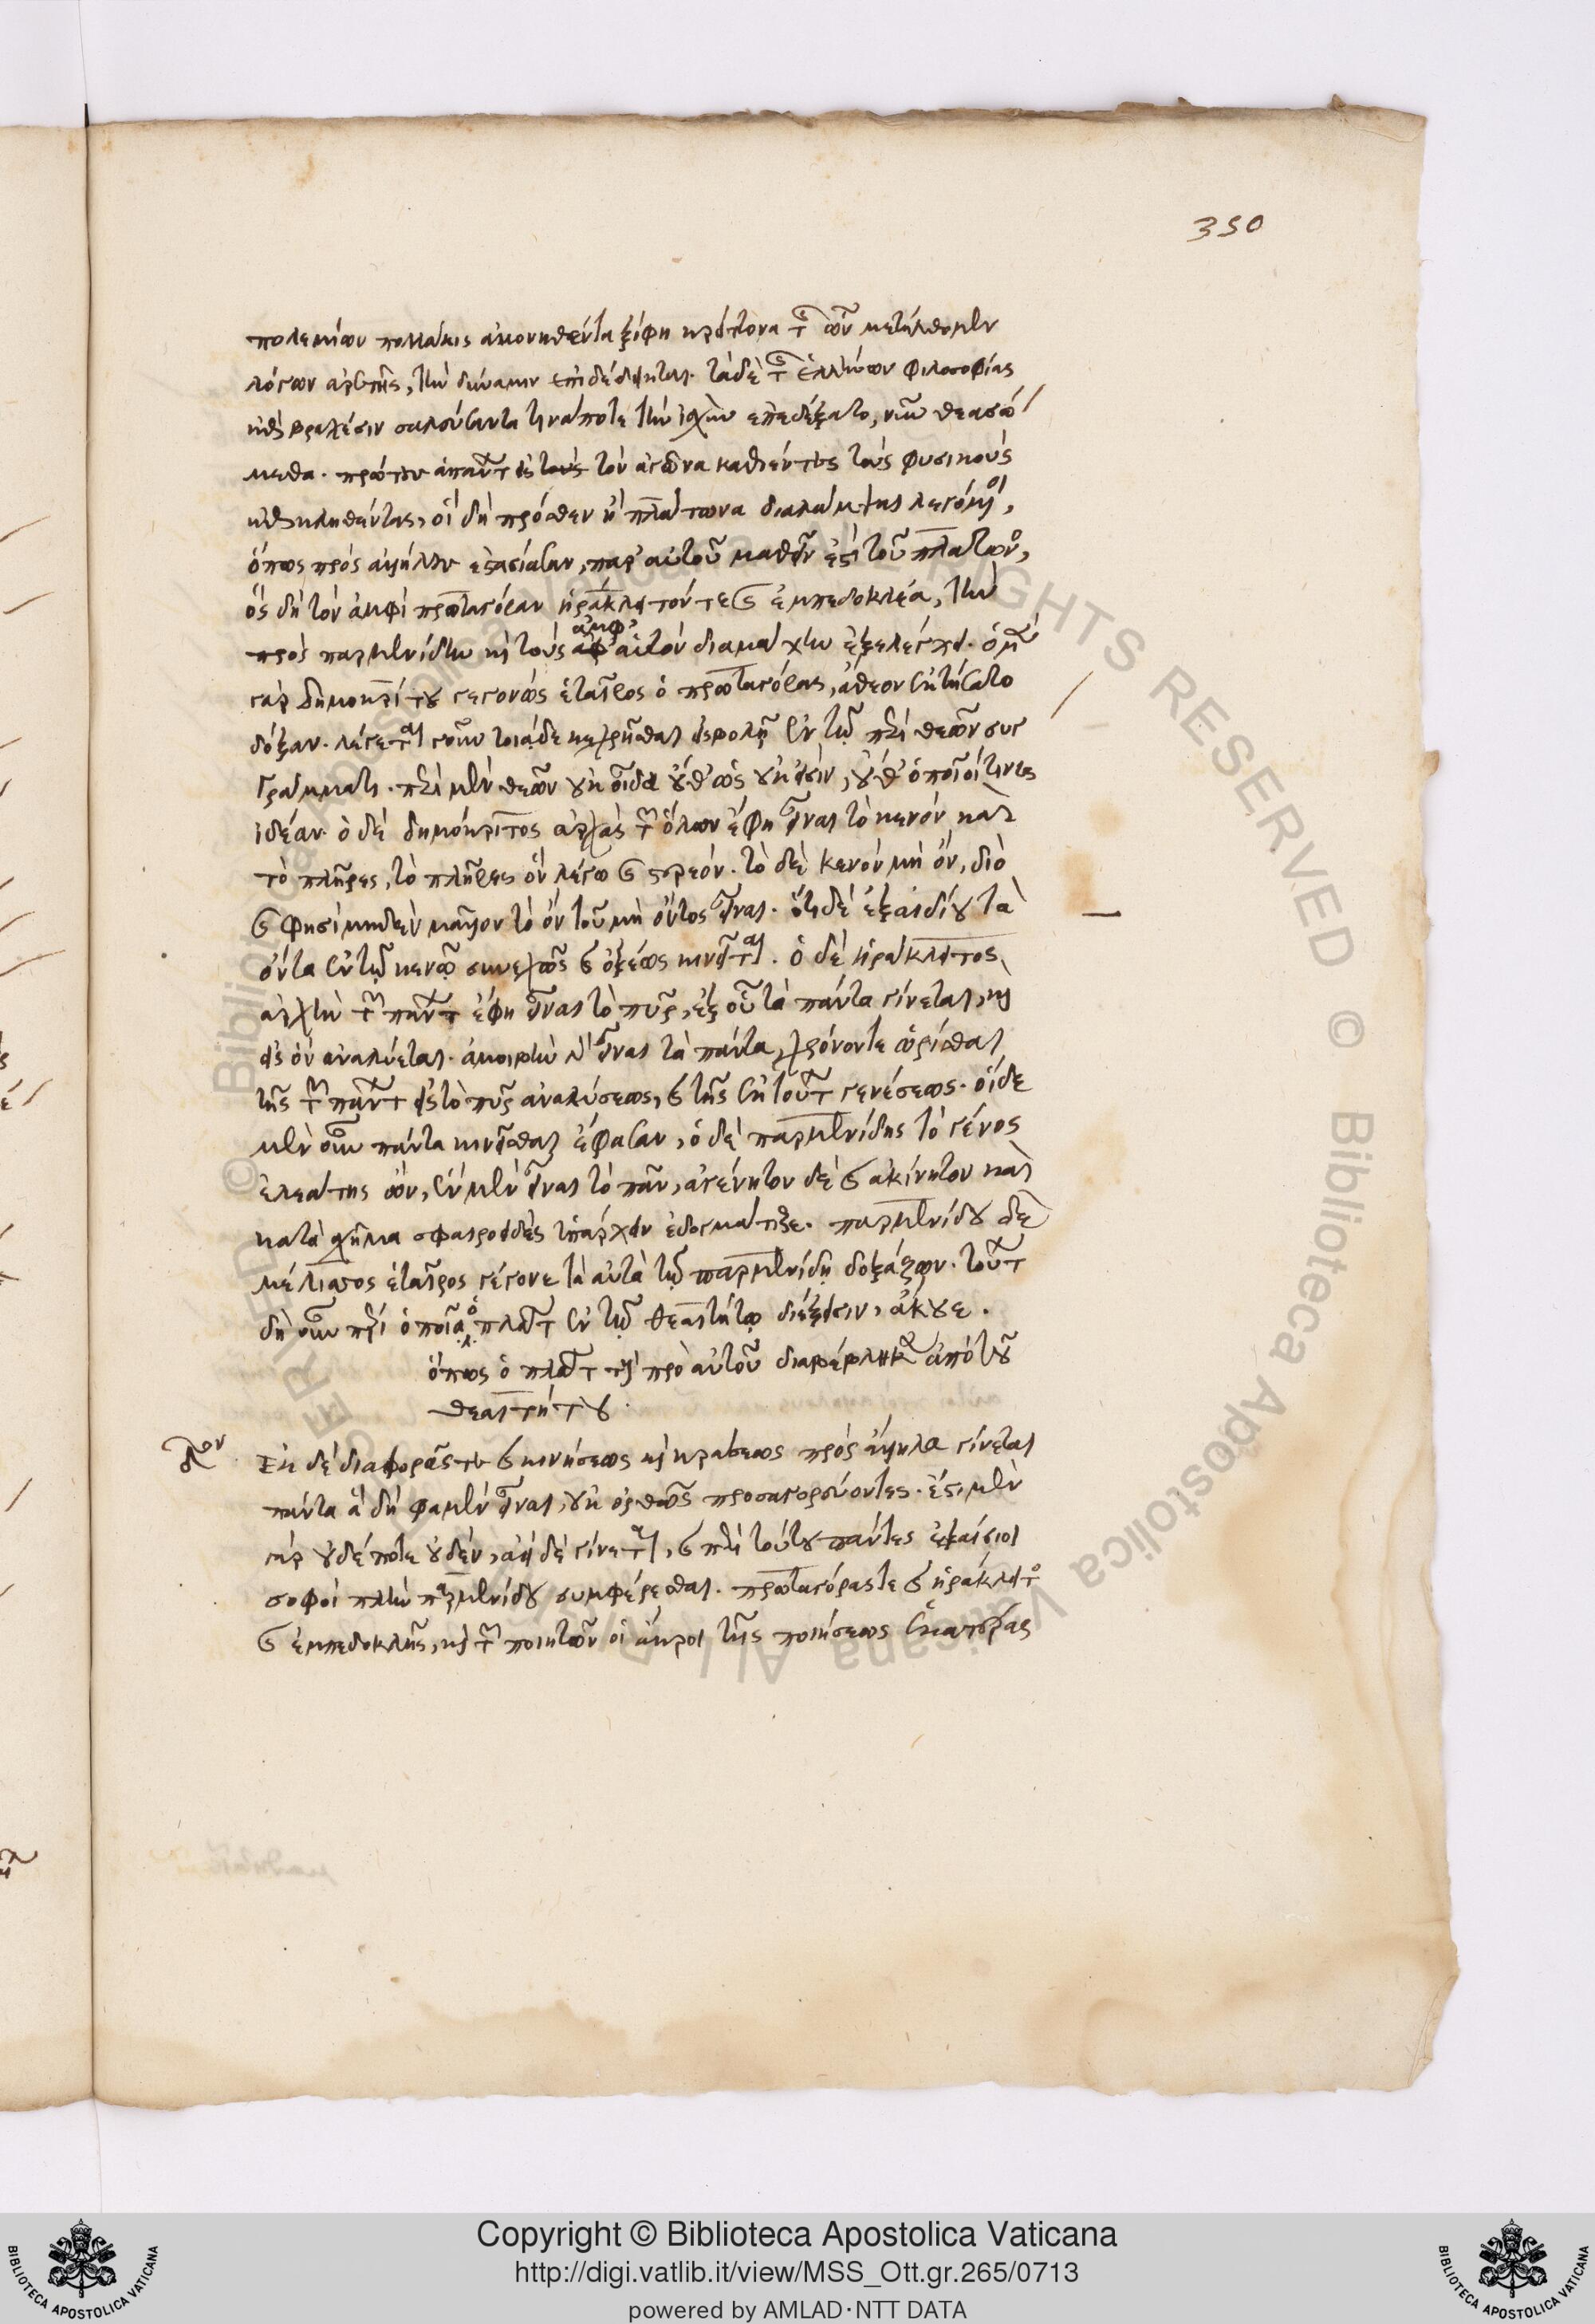 350
πολεμίων πολλάκις ἀκονηθέντα ξίφη κρείττονα τ ὧν μετήλθομεν
λόγων ἀρετῆς, τὴν δύναμιν ἐπιδέδεικται. τάδε τ ἑλλήνων φιλοσοφίας
βραχέσιν σαλεύσαντα τίνα ποτε τὴν ἰσχὺν ἐπεδέξατο, νῦν θεασώ
μεθα. πρῶτον ἁπάντων εἰς τὸν ἀγῶνα καθιέντες τοὺς φυσικοὺς
κληθέντας, οἳ δὴ πρόσθεν ἢ πλάτωνα διαλάμψαι λεγόμενοι,
ὅπως πρὸς ἀλλήλους ἐστασίασαν, παρ' αὐτοῦ μαθεῖν ἔστι τοῦ πλάτωνος,
ὃς δὴ τὸν ἀμφὶ πρωταγόραν ἡράκλειτόν τε καὶ ἐμπεδοκλέα, τὴν
πρὸς παρμενίδην καὶ τοὺς ἀμφ' αὐτὸν διαμάχην ἐξελέγχει. ὁ μὲν
γὰρ δημοκρίτου γεγονὼς ἑταῖρος ὁ πρωταγόρας, ἄθεον ἐκτήσατο
δόξαν. λέγεται γοῦν τοιᾷδε κεχρῆσθαι εἰσβολῇ ἐν τῷ περὶ θεῶν συγ
γράμματι. περὶ μὲν θεῶν οὐκ οἶδα οὔθ' ὡς οὐκ εἰσὶν, οὔθ' ὁποῖοί τινες
ἰδέαν. ὁ δὲ δημόκριτος ἀρχὰς τῶν ὅλων ἔφη εἶναι τὸ κενὸν καὶ
τὸ πλῆρες, τὸ πλῆρες ὂν λέγω καὶ στερεόν. τὸ δὲ κενὸν μὴ ὄν, διὸ
καὶ φησὶ μηδὲν μᾶλλον τὸ ὂν τοῦ μὴ ὄντος εἶναι. ὅτι δὲ ἐξ ἀιδίου τὰ
ὄντα ἐν τῷ κενῷ συνεχῶς καὶ ὀξέως κινεῖται. ὁ δὲ ἡράκλειτος,
ἀρχὴν τῶν πάντων ἔφη εἶναι τὸ πῦρ, ἐξ οὗ τὰ πάντα γίνεται, καὶ
εἰς ὃν ἀναλύεται. ἀμοιβὴν εἶναι τὰ πάντα, χρόνον τε ὡρίσθαι
τῆς τῶν πάντων εἰς τὸ πῦρ ἀναλύσεως, καὶ τῆς ἐκ τούτ γενέσεως. οἵδε
μὲν οὖν πάντα κινεῖσθαι ἔφασαν, ὁ δὲ παρμενίδης τὸ γένος
ἐλεάτης ὢν, ἓν μὲν εἶναι τὸ πᾶν, ἀγένητον δὲ καὶ ἀκίνητον καὶ
κατὰ σχῆμα σφαιροειδὲς ὑπάρχειν ἐδογμάτιζε. παρμενίδου δὲ
μέλισσος ἑταῖρος γέγονε τὰ αὐτὰ τῷ παρμενίδῃ δοξάζων. τούτ
δὴ οὖν περὶ ὁποῖα ὁ πλάτων ἐν τῷ θεαιτήτῳ διέξεισιν, ἄκουε.
ὅπως ὁ πλάτων τοὺς πρὸ αὐτοῦ διαβέβληκεν ἀπὸ τοῦ
θεαιτήτου.
Ἐκ δὲ διαφορᾶς τε καὶ κινήσεως καὶ κράσεως πρὸς ἄλληλα γίνεται
πάντα ἃ δή φαμεν εἶναι, οὐκ ὀρθῶς προσαγορεύοντες. ἔστι μὲν
γὰρ οὐδέποτε οὐδέν, ἀεὶ δὲ γίνεται, καὶ περὶ τούτου πάντες ἐξαίσιοι
σοφοὶ πλὴν παρμενίδου συμφέρεσθαι. πρωταγόρας τε καὶ ἡράκλειτος
καὶ ἐμπεδοκλῆς, καὶ τῶν ποιητῶν οἱ ἄκροι τῆς ποιήσεως ἑκατέρας
Copyright © Biblioteca Apostolica Vaticana
http://digi.vatlib.it/view/MSS_Ott.gr.265/0713
powered by AMLAD·NTT DATA
BIBLIOTECA APOSTOLICA VATICANA
BIBLIOTECA APOSTOLICA VATICANA